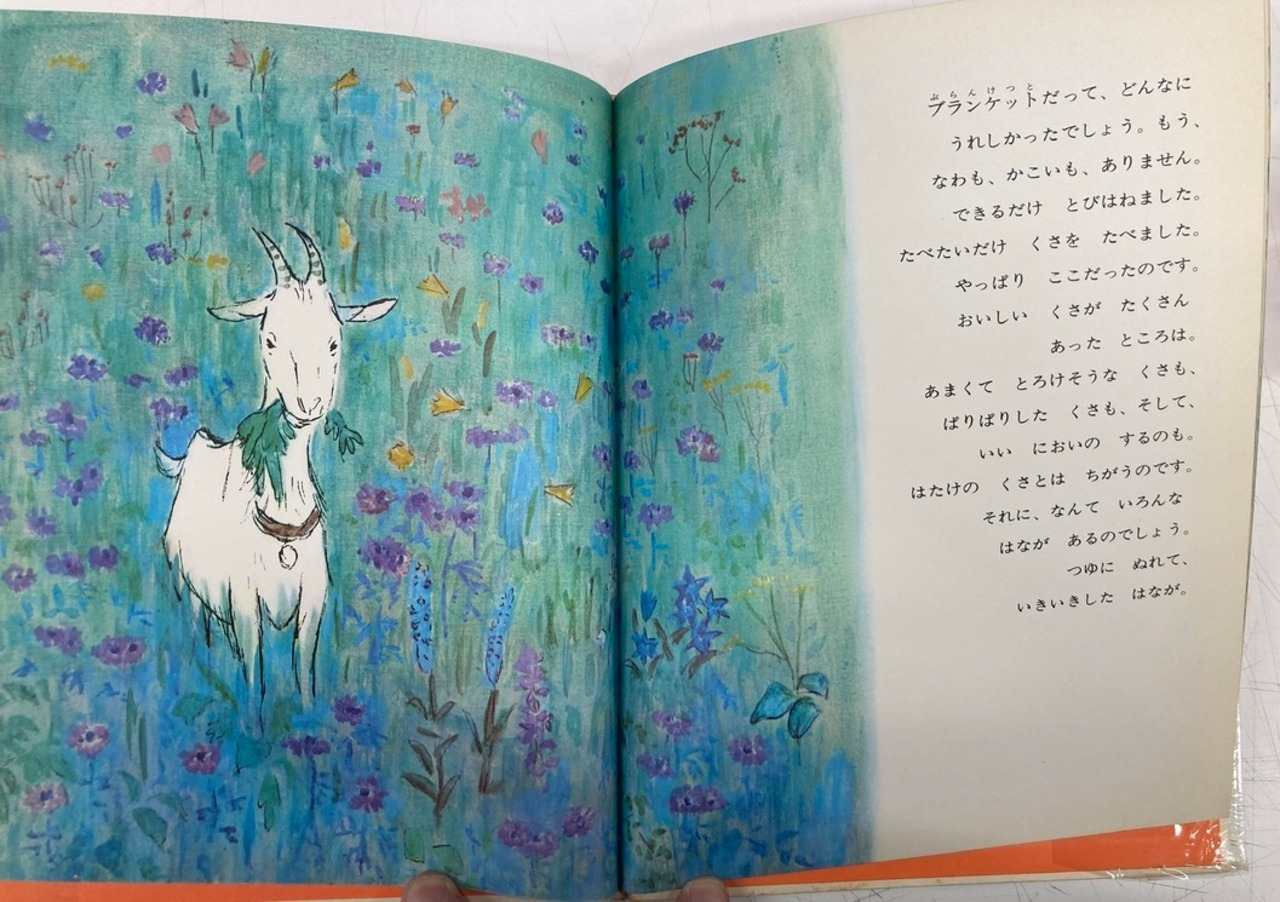 ブランケットだって、どんなに
うれしかったでしょう。もう、
なわも、かこいも、ありません。
できるだけ　とびはねました。
たべたいだけ　くさを　たべました。
やっぱり　ここだったのです。
おいしい　くさが　たくさん
あった　ところは。
あまくて　とろけそうな　くさも、
ぱりぱりした　くさも、そして、
いい　においの　するのも。
はたけの　くさとは　ちがうのです。
それに、なんて　いろんな
はなが　あるのでしょう。
つゆに　ぬれて、
いきいきした　はなが。